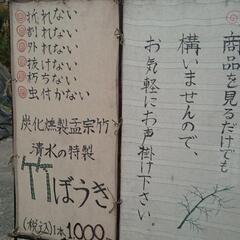 折れない
割れない
外れない
抜けない
朽ちない
虫付かない
炭化燻製孟宗竹
清水の特製
竹ぼうき
(税込)1本1000
商品を見るだけでも
構いませんので、
お気軽にお声掛け下さい。